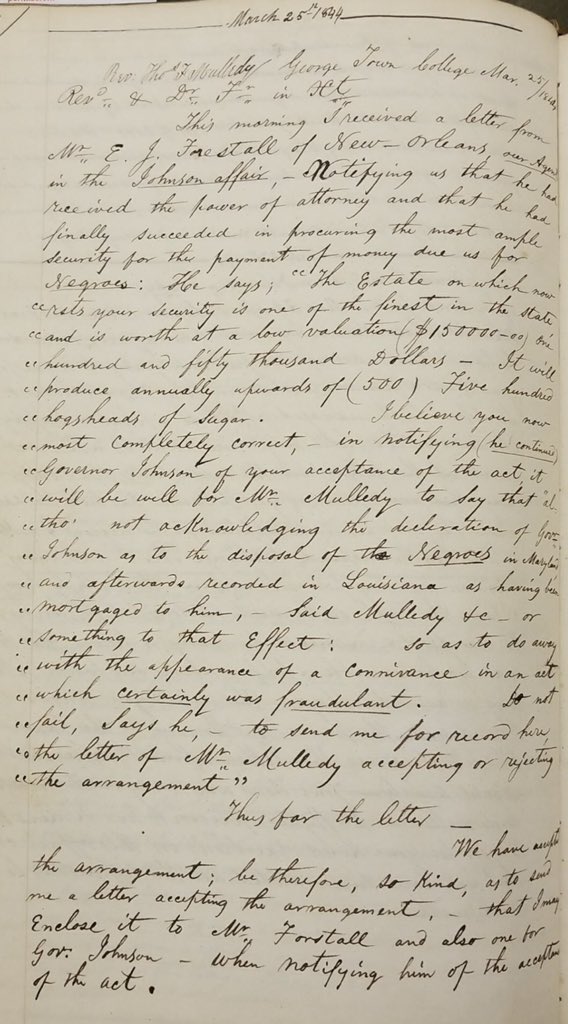 March 25th 1844
Rev. Thos F Mulledy George Town College Mar. 25/1844
Revd & Dr Fr in Xt
This morning I received a letter from
Mr E. J. Forestall of New-Orleans our Agent
in the Johnson affair, - Notifying us that he had
received the power of attorney and that he had
finally succeeded in procuring the most ample
security for the payment of money due us for
Negroes: He says; "The Estate on which now
"rsts your security is one of the finest in the state
"and is worth at a low valuation ($150000-00) one
"hundred and fifty thousand Dollars - It will
"produce annually upwards of (500) Five hundred
"hogsheads of Sugar. I believe you now
"most completely correct, - in notifying (he continues)
"Governor Johnson of your acceptance of the act, it
"will be will for Mr Mulledy to say that "al-
"tho' not acknowledging the decleration of Govr
"Johnson as to the disposal of the Negroes in Maryland
"and afterwards recorded in Louisiana as having been
"mortgaged to him, - Said Mulledy &c - or
"something to that Effect: so as to do away
"with the appearance of a connivance in an act
"which certainly was fraudulant. Do not
"fail, Says he, - to send me for record here,
"the letter of Mr Mulledy accepting or rejecting
"the arrangement"
Thus far the letter -
We have accepted
the arrangement; be therefore, so kind, as to send
me a letter accepting the arrangement, - that I may
Enclose it to Mr Forstall and also one for
Gov. Johnson - when notifying him of the acceptance
of the act.